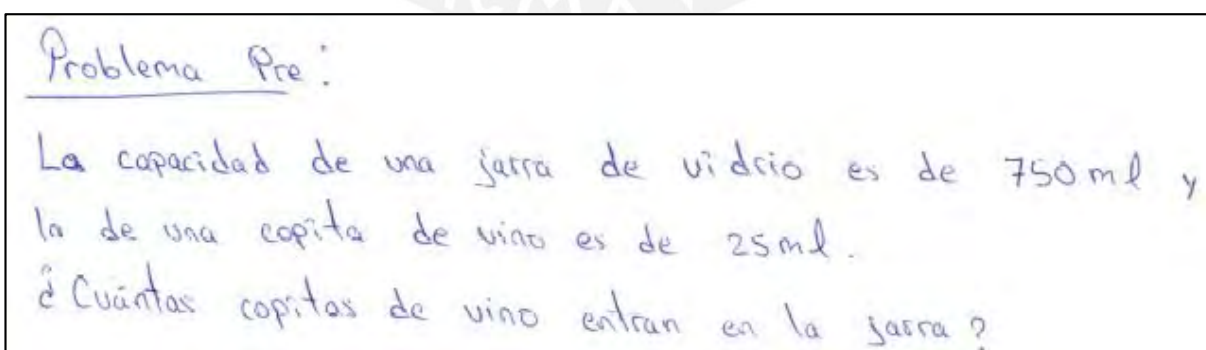 Problema Pre:
La capacidad de una jarra de vidrio es de 750 ml y
la de una copita de vino es de 25 ml.
¿Cuántas copitas de vino entran en la jarra?